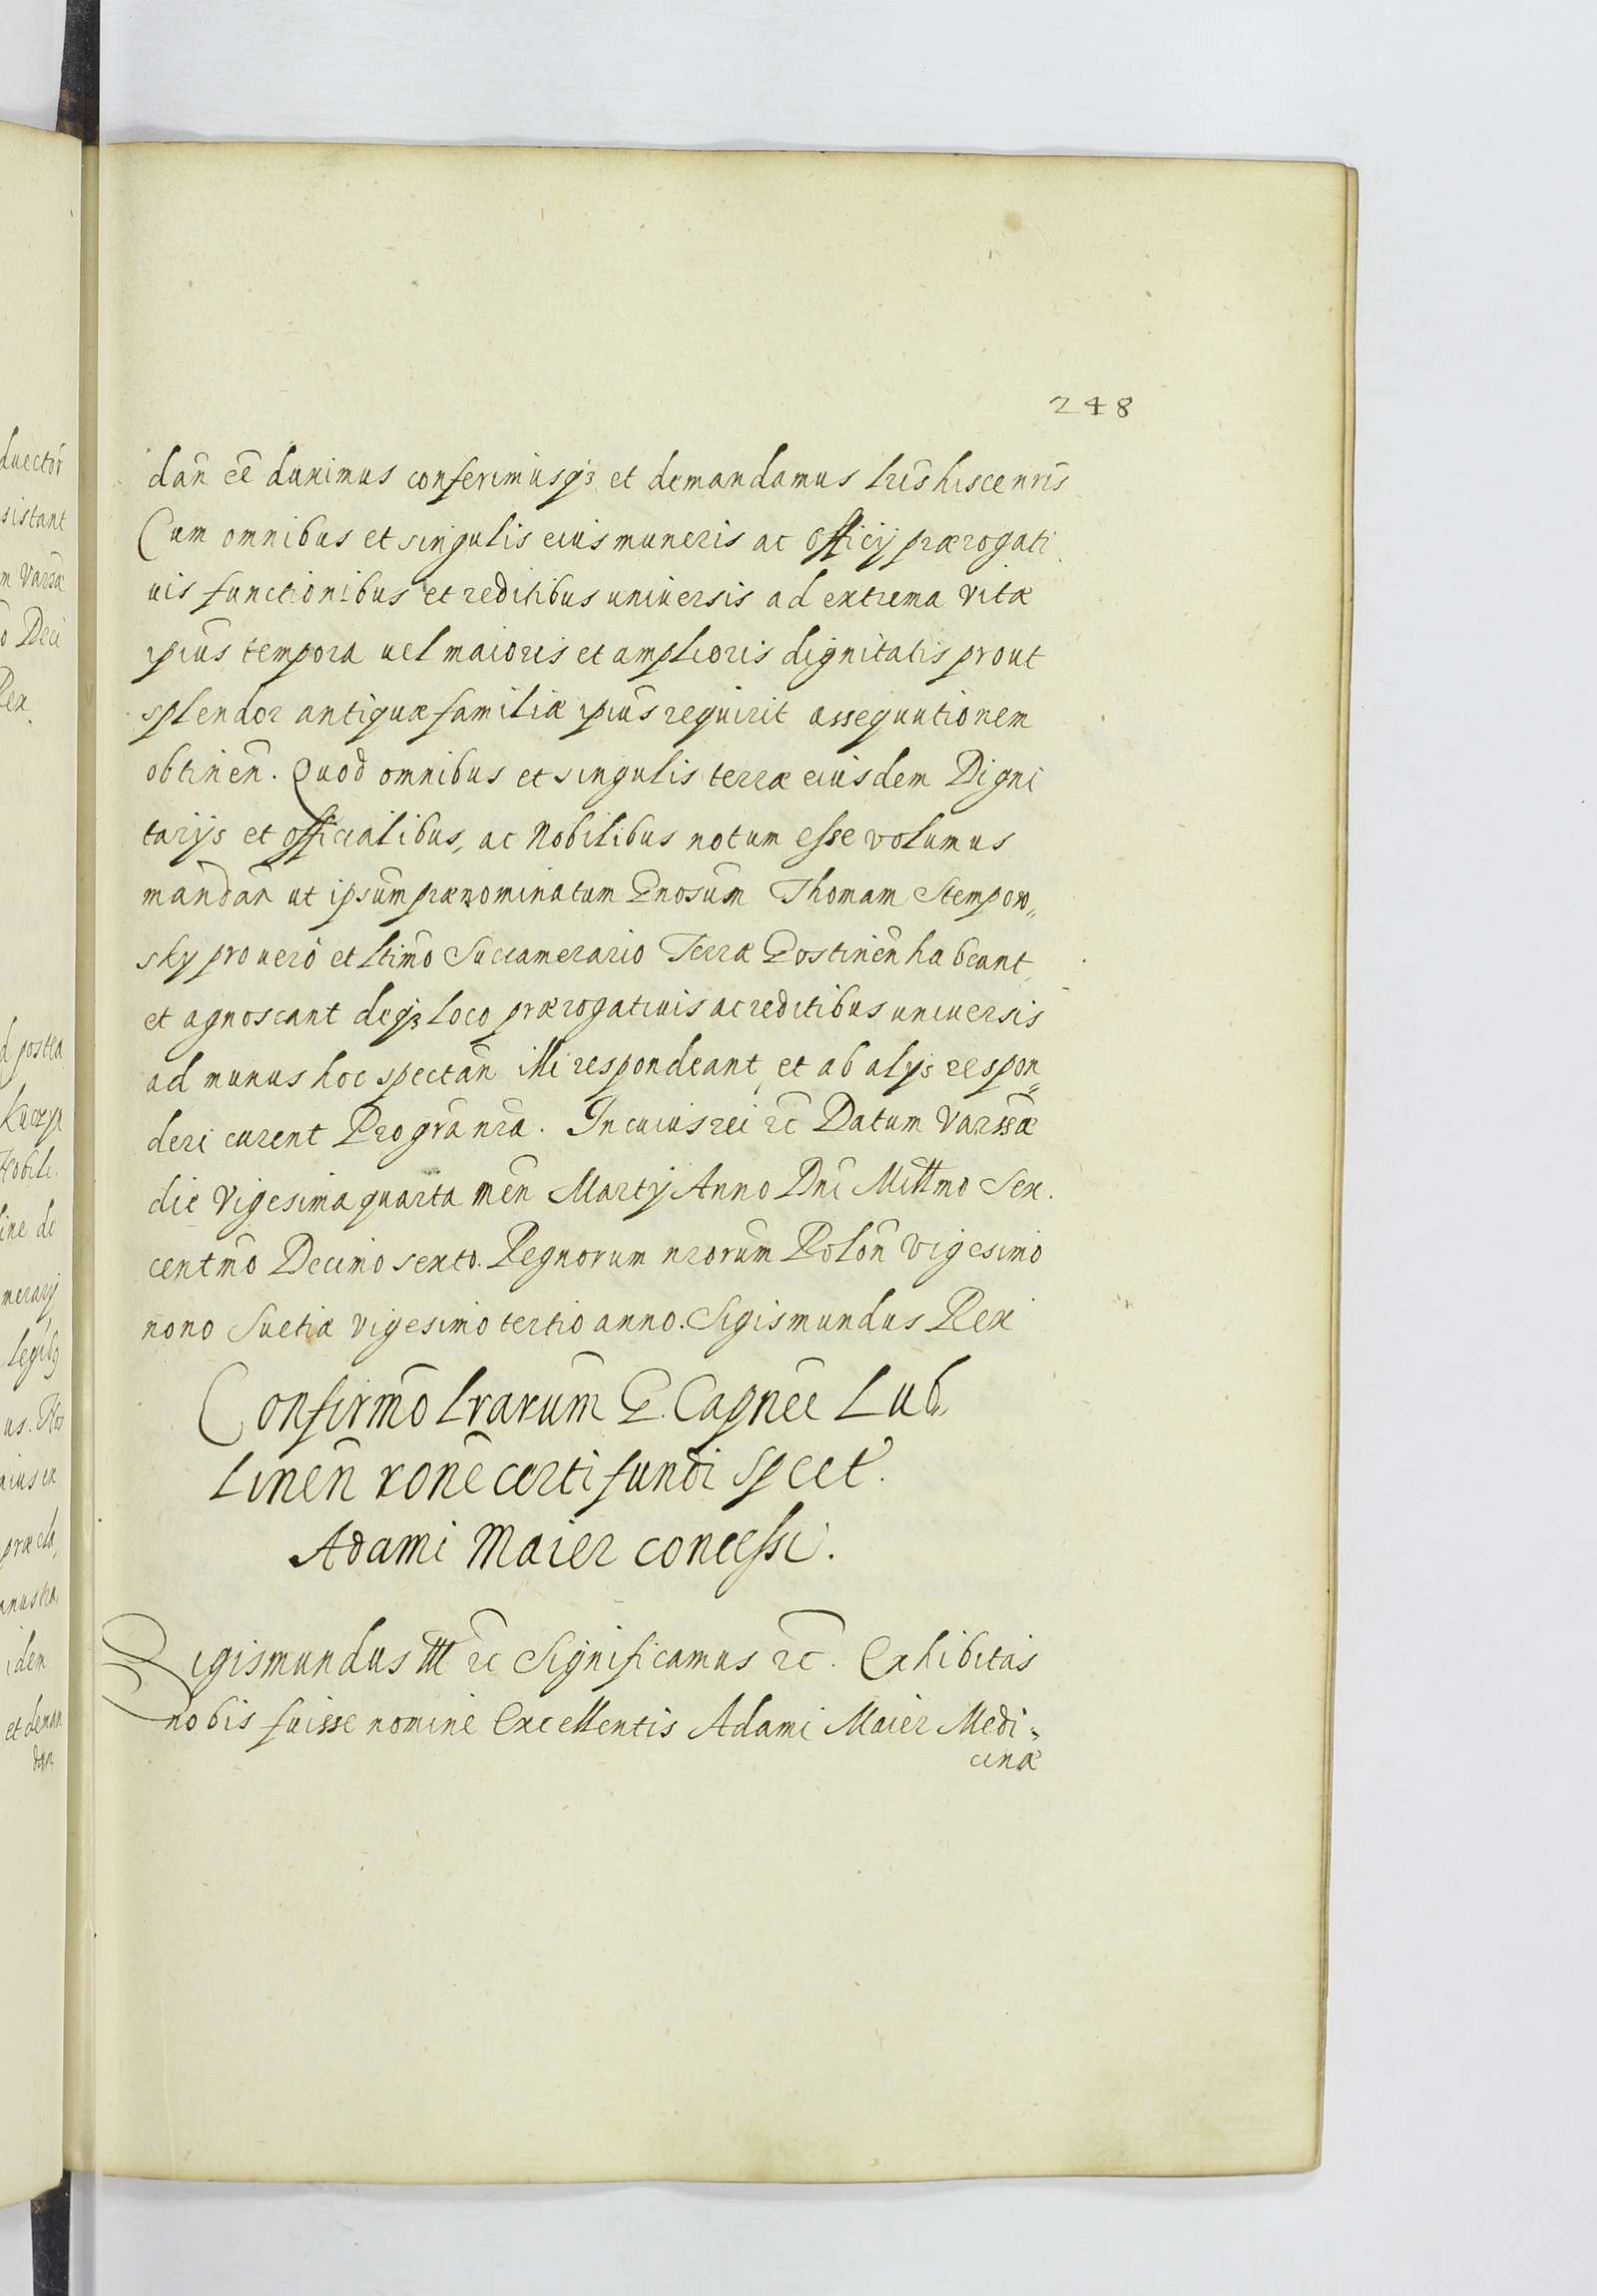 248
dan̄ ee̅ duximus conferimusqꝫ et demandamus lris̅ hisce nris̅
Cum omnibus et singulis eius muneris ac officij prærogati
uis functionibus et reditibus uniuersis ad extrema vitæ
ipius̅ tempora uel maioris et amplioris dignitatis prout
splendor antiquæ familiæ ipius̅ requirit assequutionem
obtinen̄. Quod omnibus et singulis terræ eiusdem Digni
tarijs et officialibus, ac Nobilibus notum esse volumus
mandan̄ ut ipsum prænominatum Gnosum̅ Thomam Stempow„
sky pro uero et ltimo̅ Succamerario Terræ Gostinen̄ habeant,
et agnoscant deqꝫ loco prærogatiuis ac reditibus uniuersis
ad munus hoc spectan̄ illi respondeant, et ab alijs respon„
deri curent Pro gra̅ nra̅. In cuius rei ꝛc̅ Datum Varssæ̅
die Vigesima quarta men̄ Martij Anno Dni̅ Millmo̅ Sex.
centmo̅ Decimo sexto. Regnorum nrorum̅ Polon̄ vigesimo
nono Suetiæ vigesimo tertio anno. Sigismundus Rex
Confirmo̅ lrarum̅ G. Capnee̅ Lub„
linen̄ rone̅ certi fundi spcet.
Adami Maier concessi.
Sigismundus III ꝛc̅ Significamus ꝛc̅. Exhibitas
nobis fuisse nomine Excellentis Adami Maier Medi„
cinæ
duector
sistant
m Varsæ
o Deci
Rex
d postea
Nobili.
ine de
merarij
us. Nos
idem
et deman
dan̄